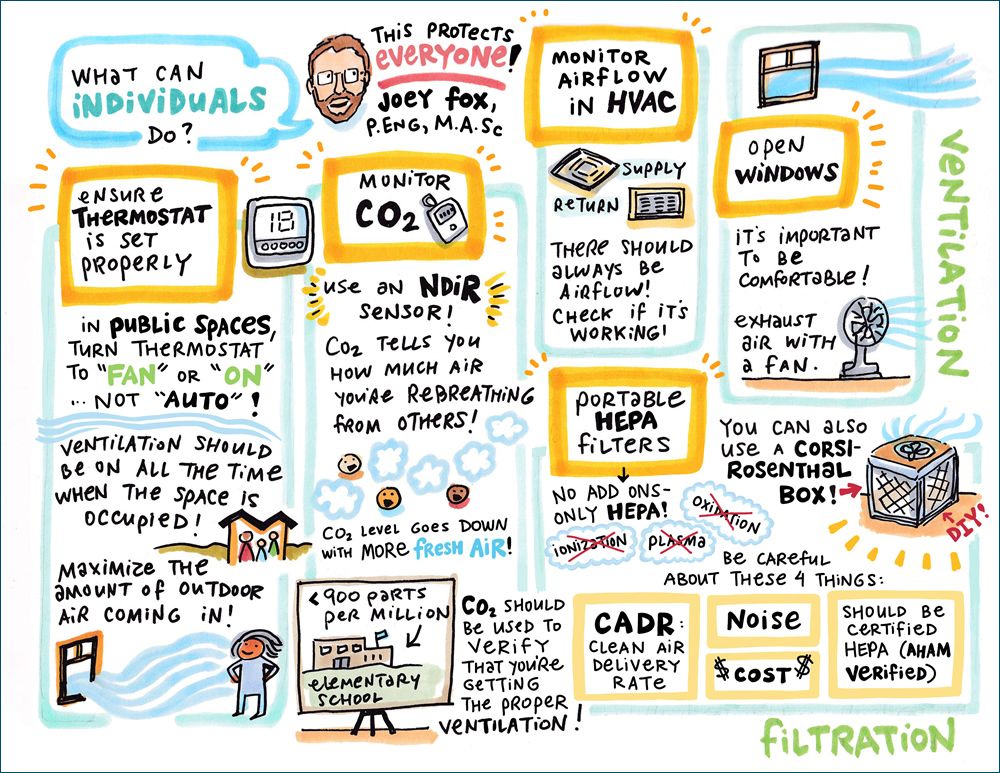 WHAT CAN
INDIVIDUALS
DO?
THIS PROTECTS
EVERYONE!
JOEY FOX,
P.ENG, M.A.Sc
ENSURE
THERMOSTAT
IS SET
PROPERLY
18
IN PUBLIC SPACES,
TURN THERMOSTAT
TO "FAN" OR "ON"
... NOT "AUTO"!
VENTILATION SHOULD
BE ON ALL THE TIME
WHEN THE SPACE IS
OCCUPIED!
MAXIMIZE THE
AMOUNT OF OUTDOOR
AIR COMING IN!
MONITOR
CO2
USE AN NDIR
SENSOR!
CO2 TELLS YOU
HOW MUCH AIR
YOU'RE REBREATHING
FROM OTHERS!
CO2 LEVEL GOES DOWN
WITH MORE FRESH AIR!
<900 PARTS
PER MILLION
ELEMENTARY
SCHOOL
CO2 SHOULD
BE USED TO
VERIFY
THAT YOU'RE
GETTING
THE PROPER
VENTILATION!
MONITOR
AIRFLOW
IN HVAC
SUPPLY
RETURN
THERE SHOULD
ALWAYS BE
AIRFLOW!
CHECK IF IT'S
WORKING!
OPEN
WINDOWS
IT'S IMPORTANT
TO BE
COMFORTABLE!
EXHAUST
AIR WITH
A FAN.
VENTILATION
PORTABLE
HEPA
FILTERS
NO ADD ONS-
ONLY HEPA!
OXIDATION
IONIZATION
PLASMA
YOU CAN ALSO
USE A CORSI-
ROSENTHAL
BOX!
DIY!
BE CAREFUL
ABOUT THESE 4 THINGS:
CADR:
CLEAN AIR
DELIVERY
RATE
NOISE
$COST$
SHOULD BE
CERTIFIED
HEPA (AHAM
VERIFIED)
FILTRATION